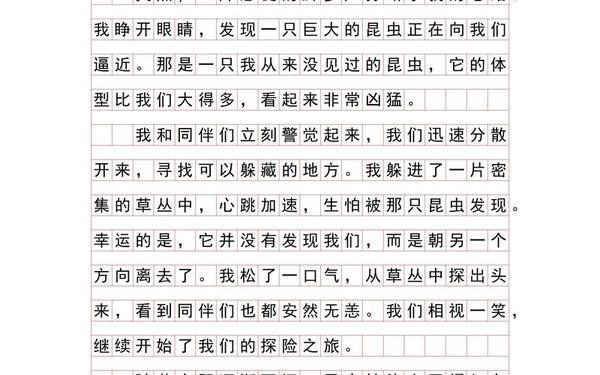 我睁开眼睛，发现一只巨大的昆虫正在向我们
逼近。那是一只我从来没见过的昆虫，它的体
型比我们大得多，看起来非常凶猛。
我和同伴们立刻警觉起来，我们迅速分散
开来，寻找可以躲藏的地方。我躲进了一片密
集的草丛中，心跳加速，生怕被那只昆虫发现。
幸运的是，它并没有发现我们，而是朝另一个
方向离去了。我松了一口气，从草丛中探出头
来，看到同伴们也都安然无恙。我们相视一笑，
继续开始了我们的探险之旅。